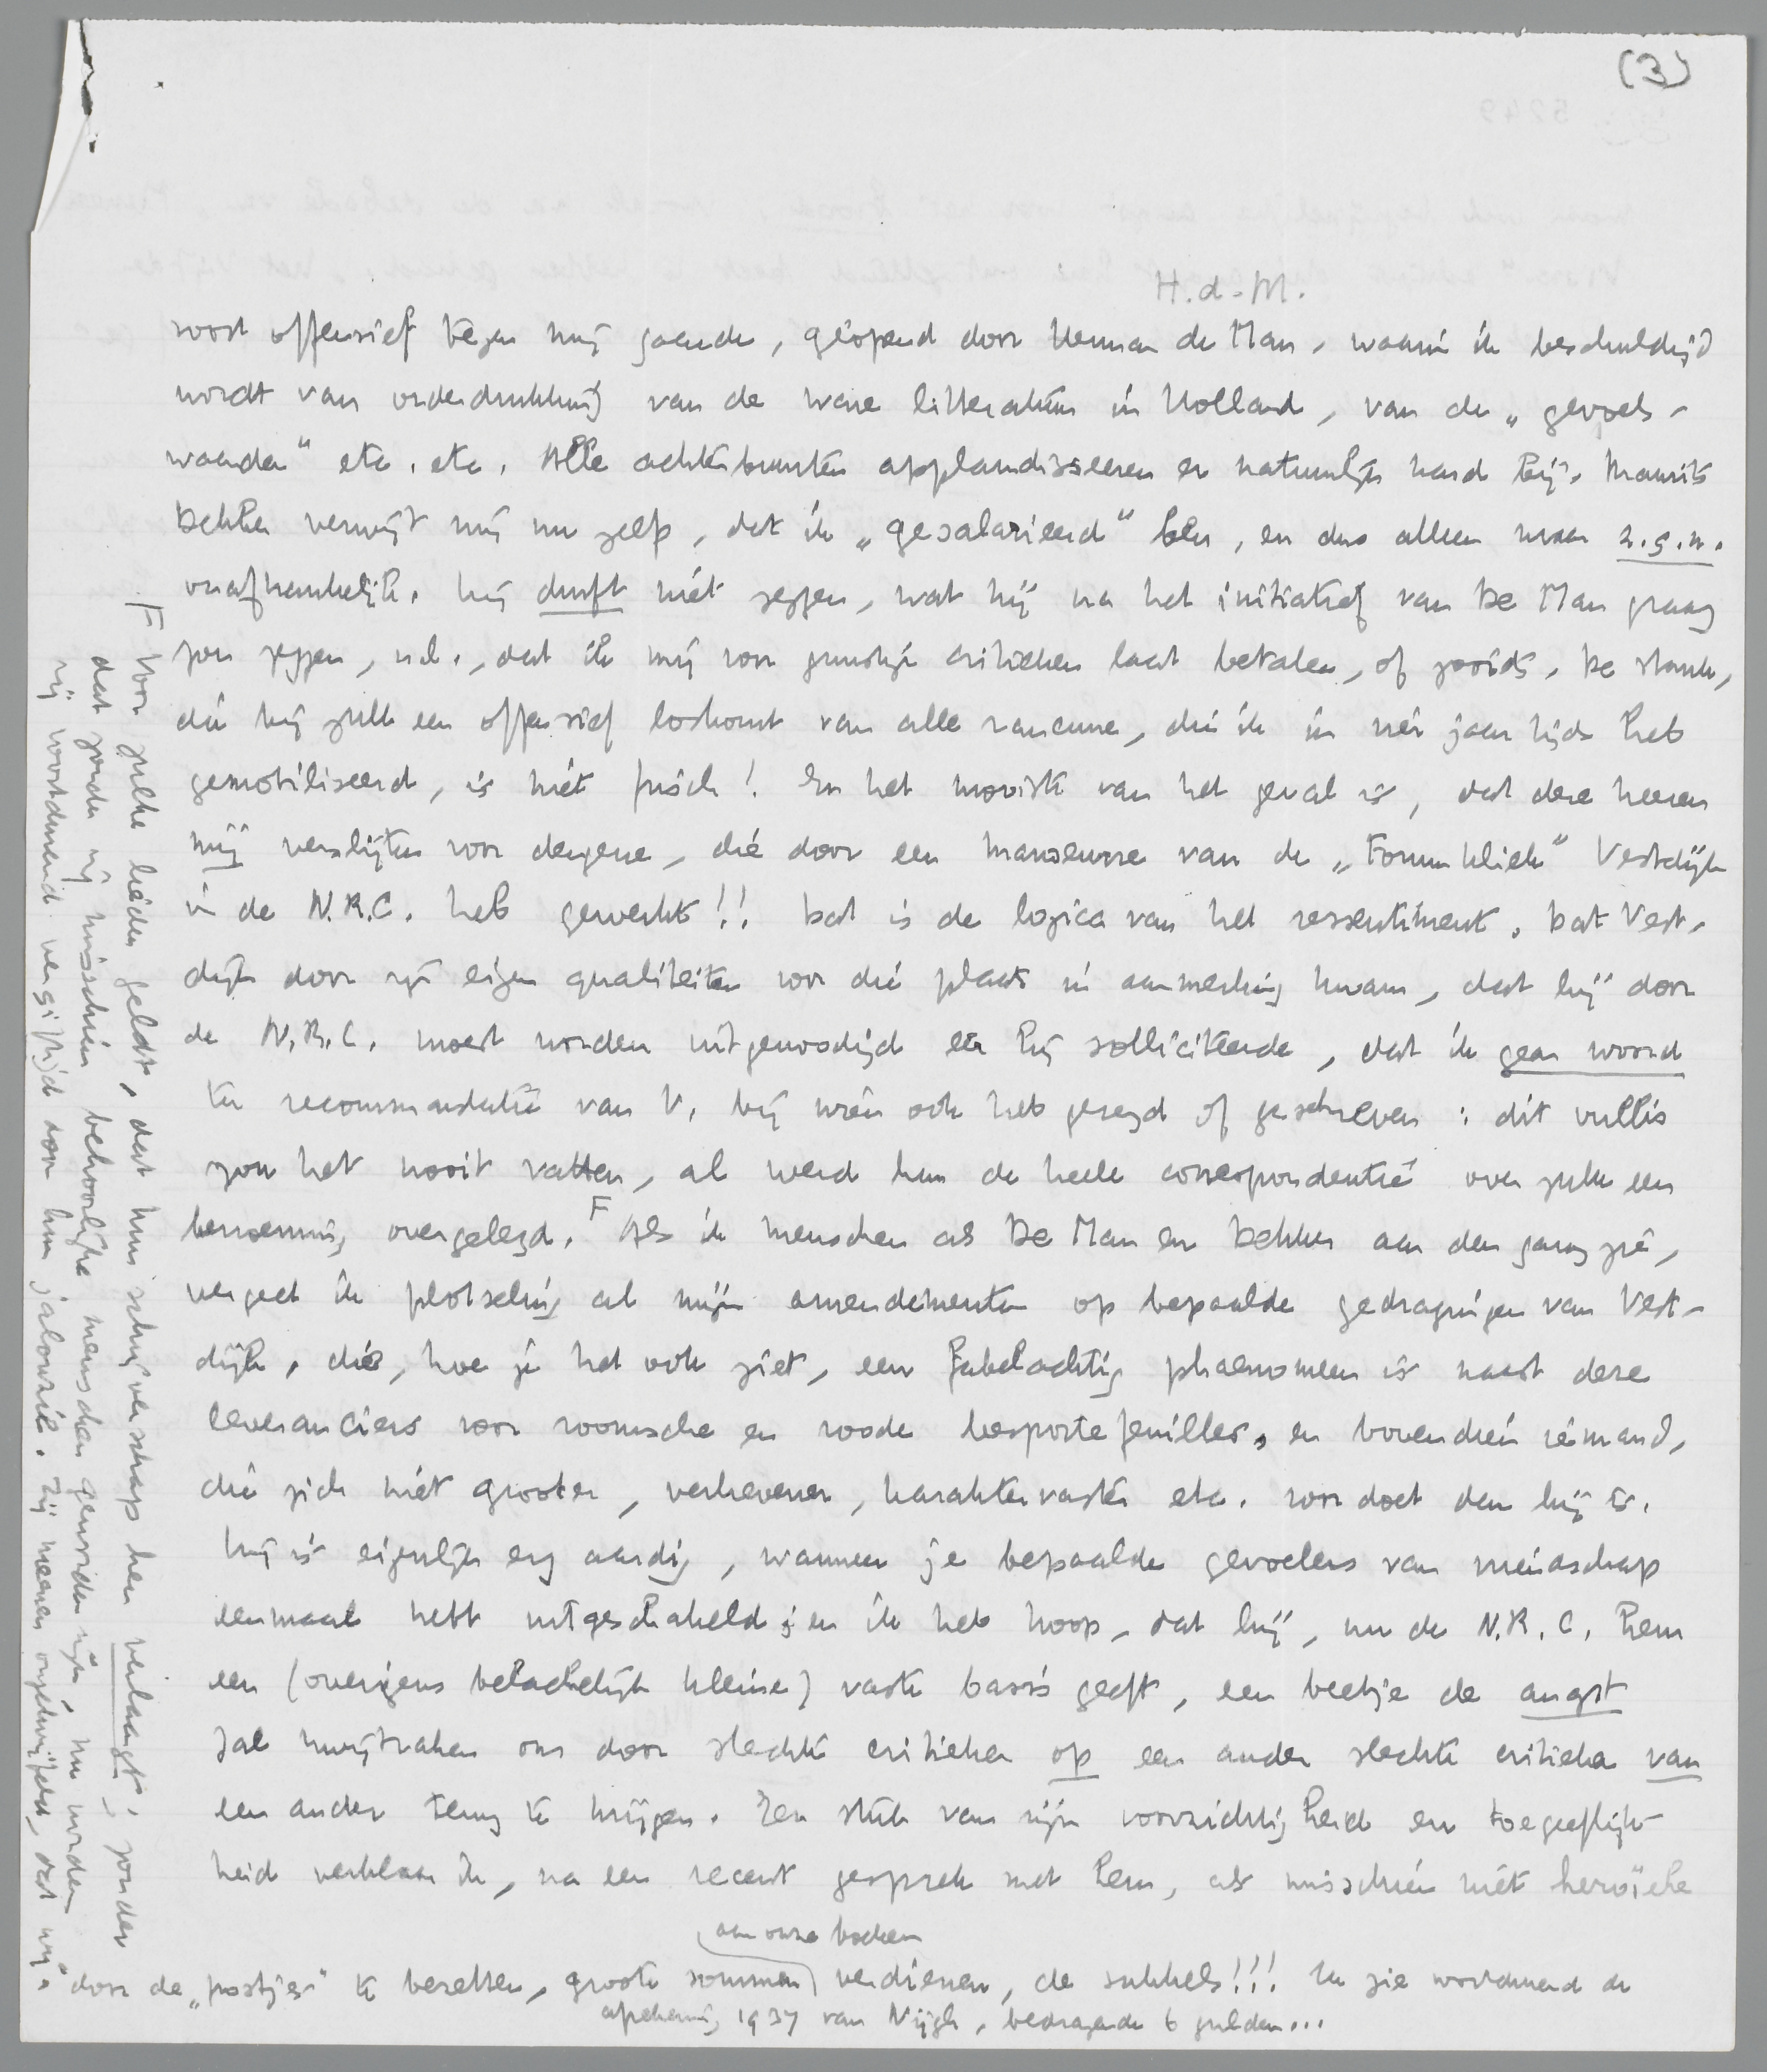 (3)
H.d.M.
soort offensief tegen mij gaande, geopend door Herman de Man, waarin ik beschuldigd
wordt van onderdrukking van de ware litteratuur in Holland, van de „gevoels-
waarden" etc. etc. Alle achterbuurten applaudisseeren er natuurlijk hard bij. Maurits
Dekker verwijt mij nu zelfs, dat ik „gesalarieerd" ben, en dus alleen maar z.g.n.
onafhankelijk. Hij durft niet zeggen, wat hij na het initiatief van De Man graag
zou zeggen, n.l., dat ik mij voor gunstige critieken laat betalen, of zooiets. De stank,
die bij zulk een offensief loskomt van alle rancune, die ik in vier jaar tijds heb
gemobiliseerd, is niet frisch! En het mooiste van het geval is, dat deze heeren
mij verslijten voor dengene, die door een manoeuvre van de „Forumkliek" Vestdijk
in de N.R.C. heb gewerkt!! Dat is de logica van het ressentiment. Dat Vest-
dijk door zijn eigen qualiteiten voor die plaats in aanmerking kwam, dat hij door
de N.R.C. moest worden uitgenoodigd eer hij solliciteerde, dat ik geen woord
ter recommandatie van V. bij wien ook heb gezegd of geschreven: dit vullis
zou het nooit vatten, al werd hun de heele correspondentie over zulk een
benoeming overgelegd. F Als ik menschen als De Man en Dekker aan den gang zie,
vergeet ik plotseling al mijn amendementen op bepaalde gedragingen van Vest-
dijk, die, hoe je het ook ziet, een fabelachtig phaenomeen is naast deze
leveranciers voor roomsche en roode leesportefeuilles, en bovendien iemand,
die zich niet grooter, verhevener, karaktervaster etc. voordoet dan hij is.
Hij is eigenlijk erg aardig, wanneer je bepaalde gevoelens van vriendschap
eenmaal hebt uitgeschakeld; en ik heb hoop, dat hij, nu de N.R.C. hem
een (overigens belachelijk kleine) vaste basis geeft, een beetje de angst
zal kwijtraken om door slechte critieken op een ander slechte critieken van
een ander terug te krijgen. Een stuk van zijn voorzichtigheid en toegeeflijk-
heid verklaar ik, na een recent gesprek met hem, als misschien niet heroïeke
F Voor zulke lieden geldt, dat hun schrijverschap hen verlaagt; zonder
dat zouden zij misschien behoorlijke menschen geworden zijn, nu worden
zij voortdurend vergiftigd door hun jalouzie. Zij meenen ongetwijfeld, dat wij,
door de „postjes" te bezetten, groote sommen aan onze boeken verdienen, de sukkels!!! Zie voortdurend de
afrekening 1937 van Nijgh, bedragende 6 gulden...